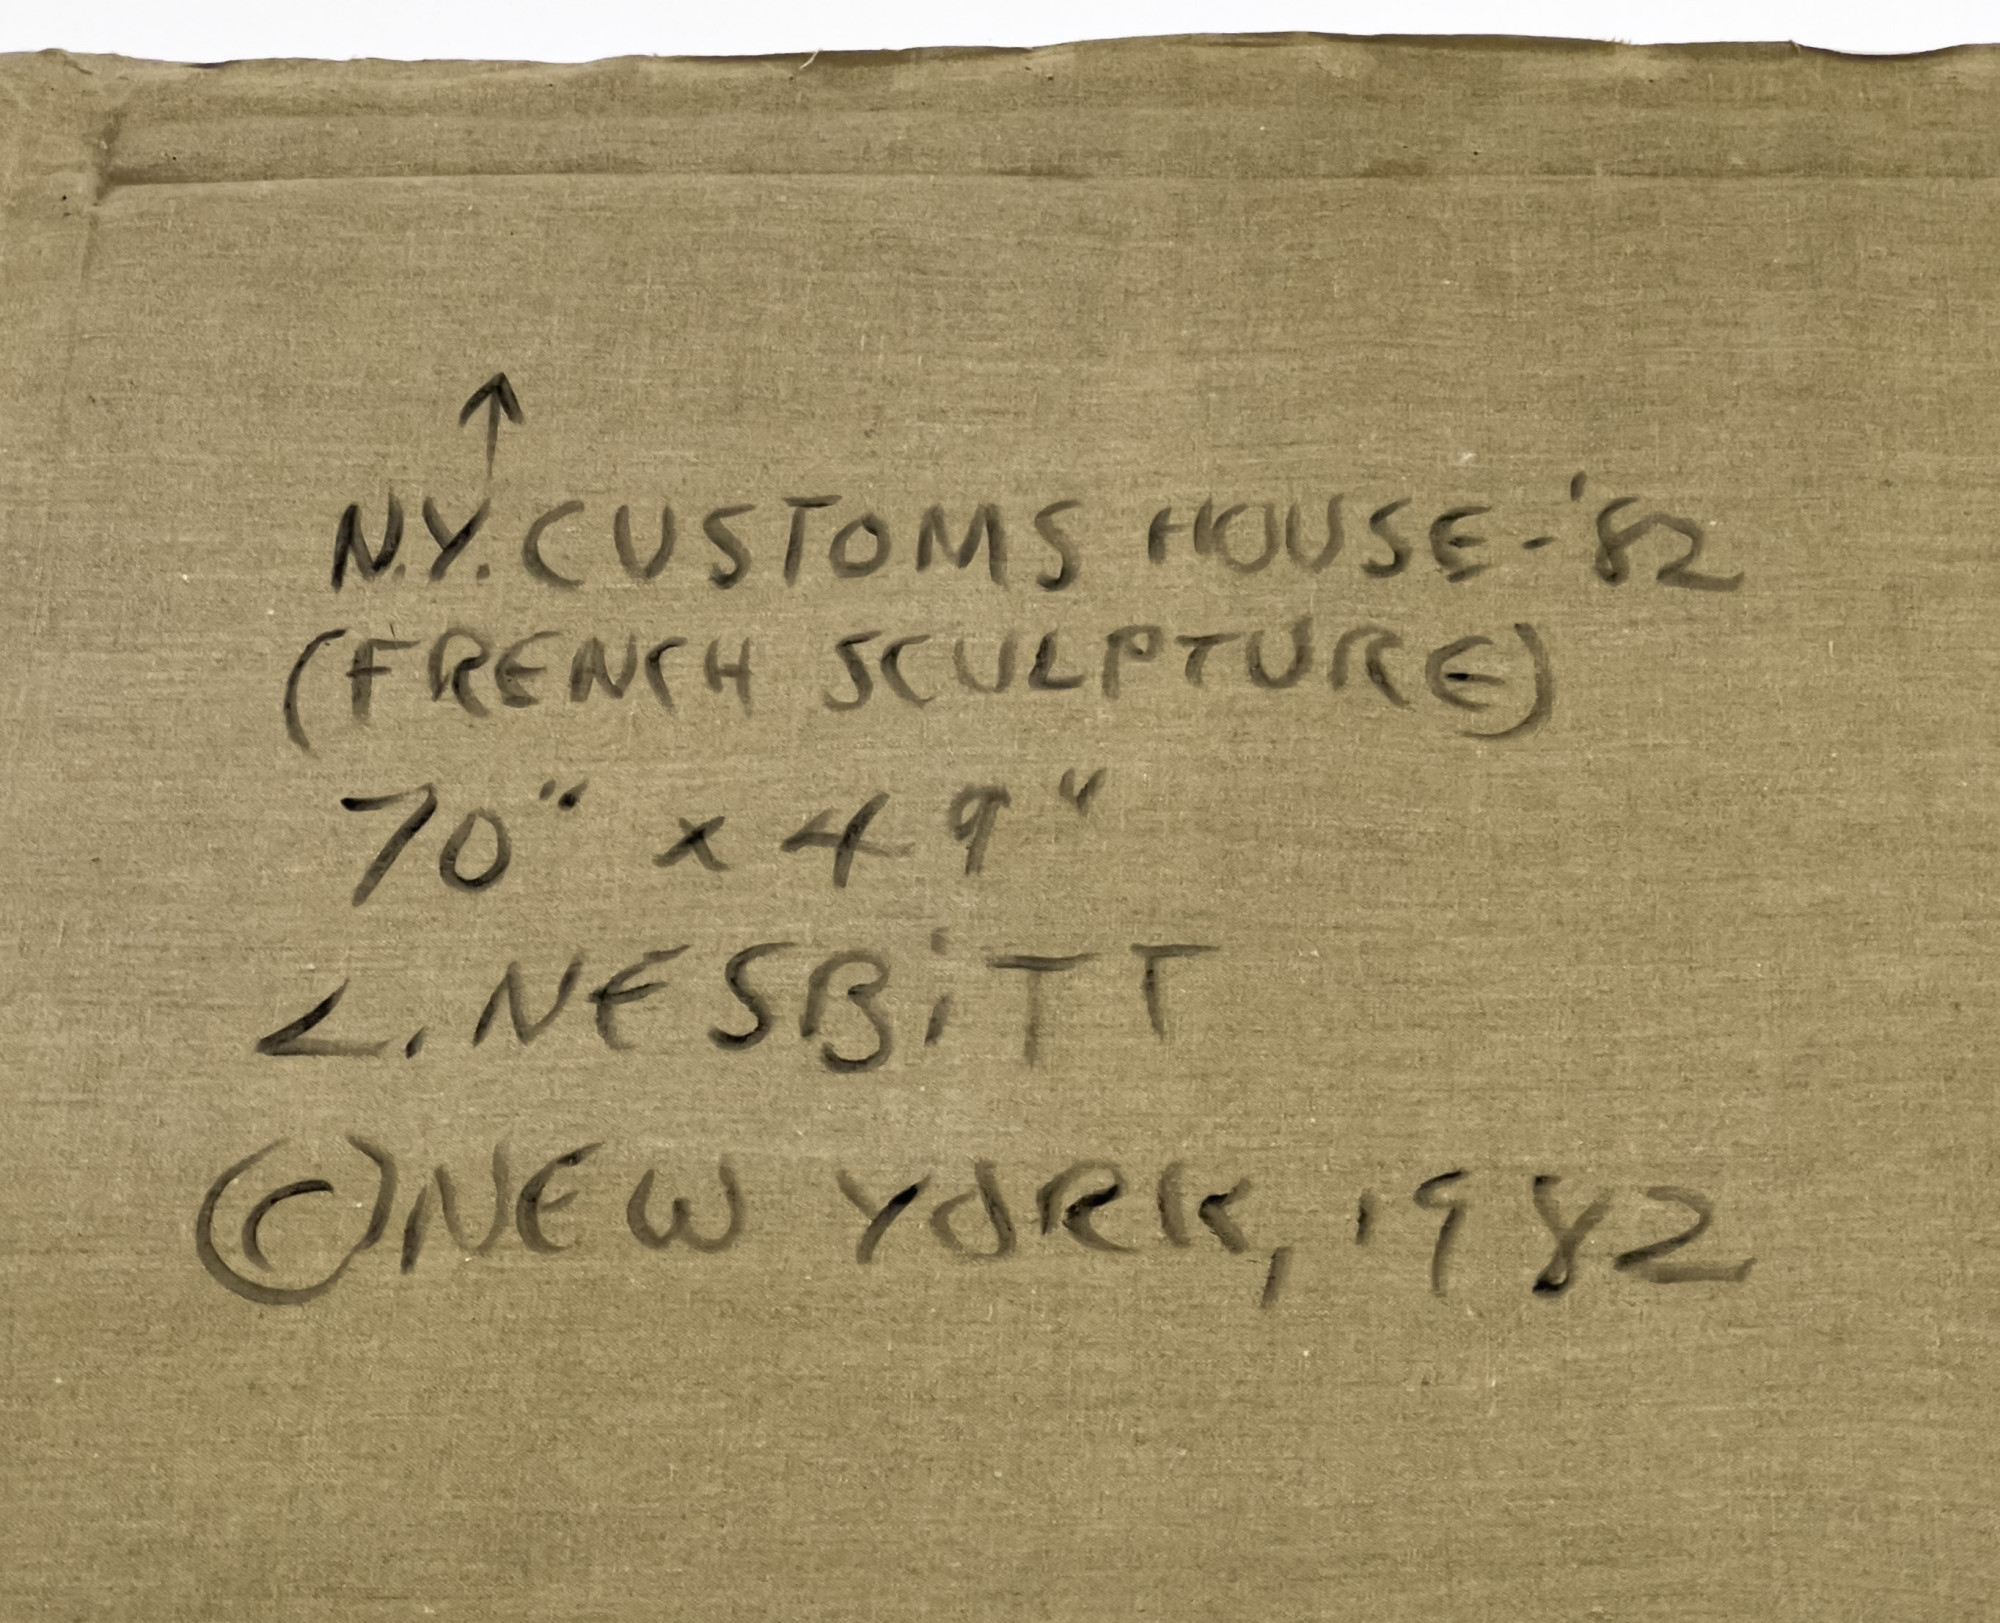 ↑
N.Y. CUSTOMS HOUSE-'82
(FRENCH SCULPTURE)
70" x 49"
L. NESBiTT
© NEW YORK, 1982